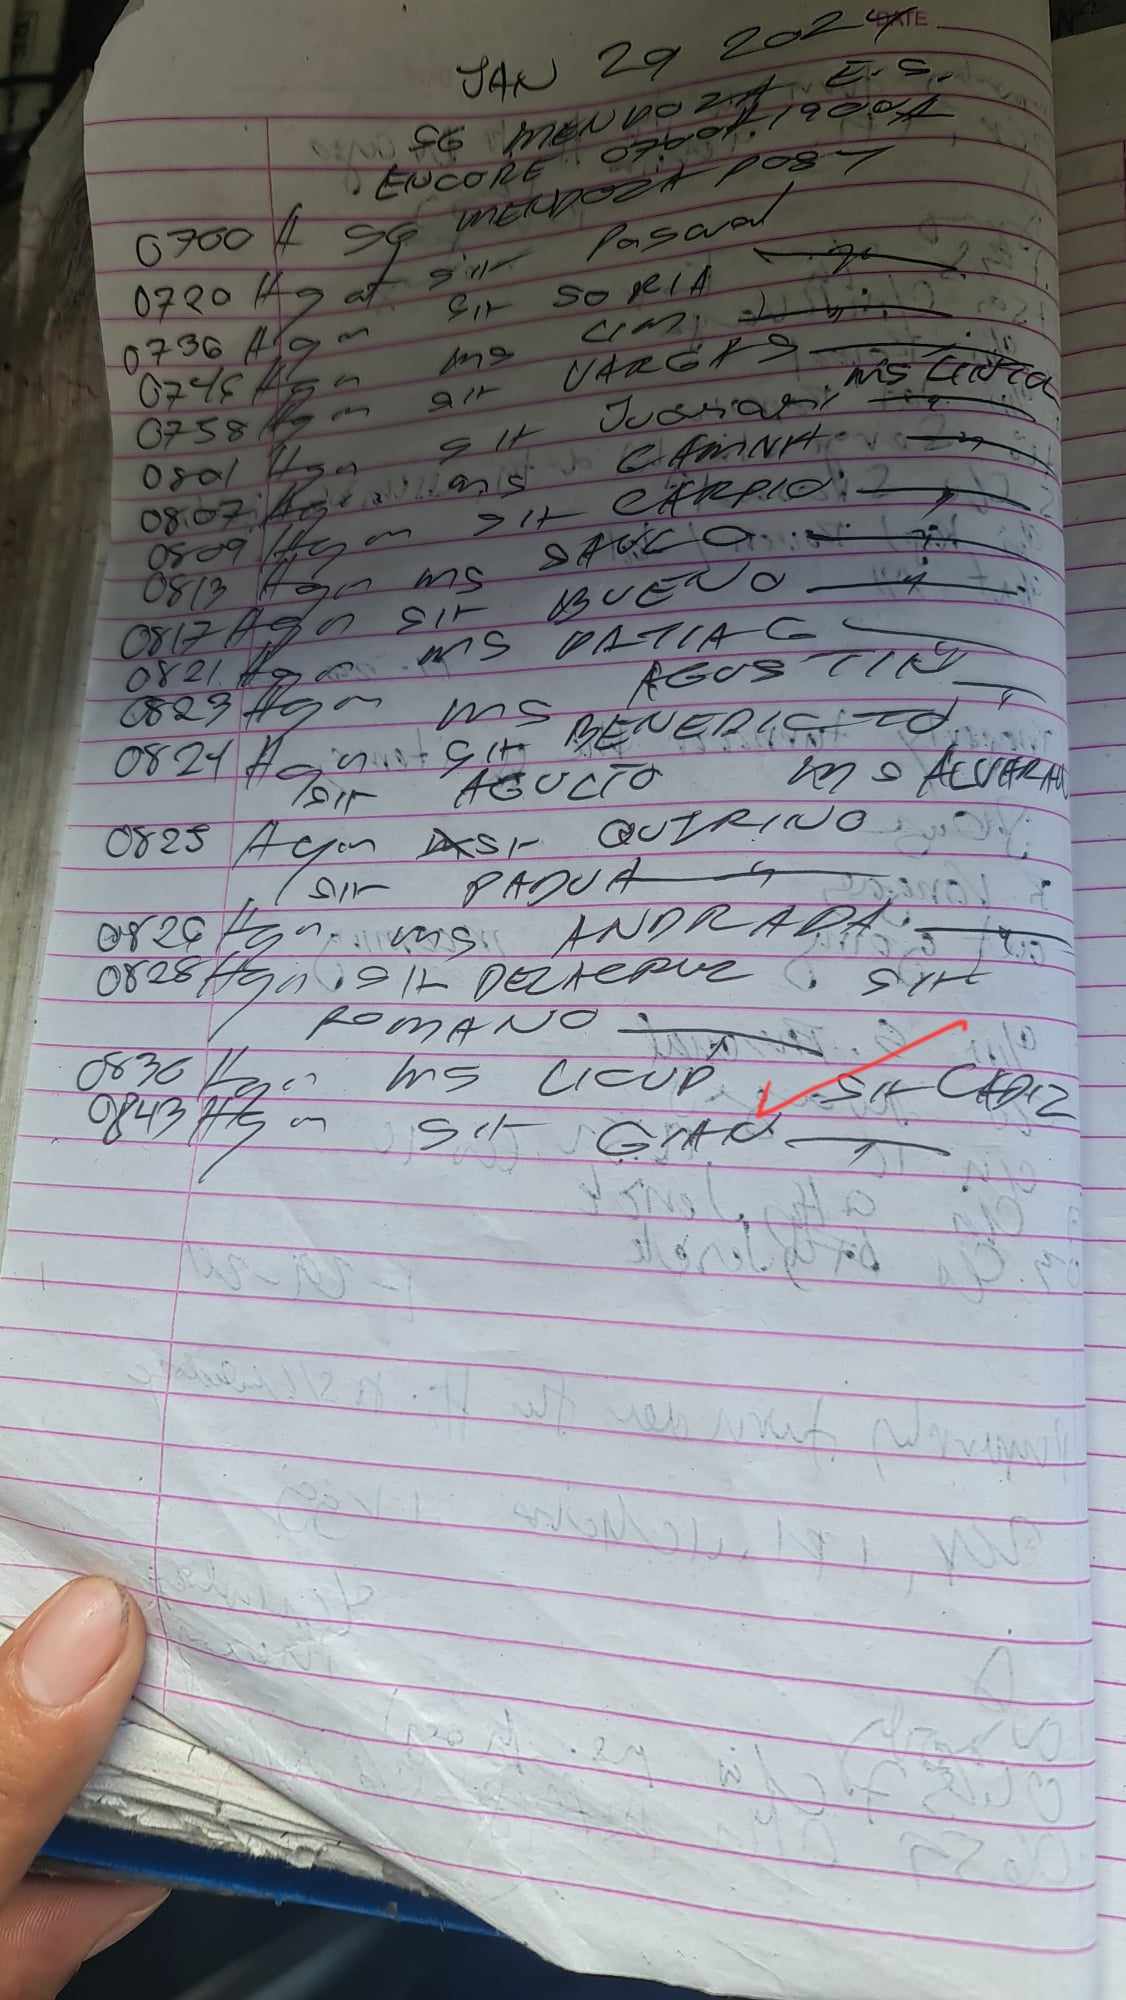 DATE
JAN 29 2024
SG MENDOZA E.S.
ENCORE 0700H 1900H
0700 H SG MENDOZA POST
0720 Hgn at sir Pascual
0736 Hgn sir SORIA
0745 Hgn ms Lim
0758 Hgn sir VARGAS
0801 Hgn sir ms
0807 Hgn ms CAMNA
0809 Hgn sir CARPIO
0813 Hgn ms SAUCO
0817 Hgn sir BUENO
0821 Hgn ms PATIAG
0823 Hgn ms AGUSTIN
0824 Hgn sir BENEDICTO
/sir AGUCTO ms ALVARAD
0825 Hgn sir QUIRINO
/sir PADUA
0826 Hgn ms ANDRADA
0828 Hgn sir DELACRUZ . sir
ROMANO
0830 Hgn ms LICUP sir CADIZ
0843 Hgn sir GIAN